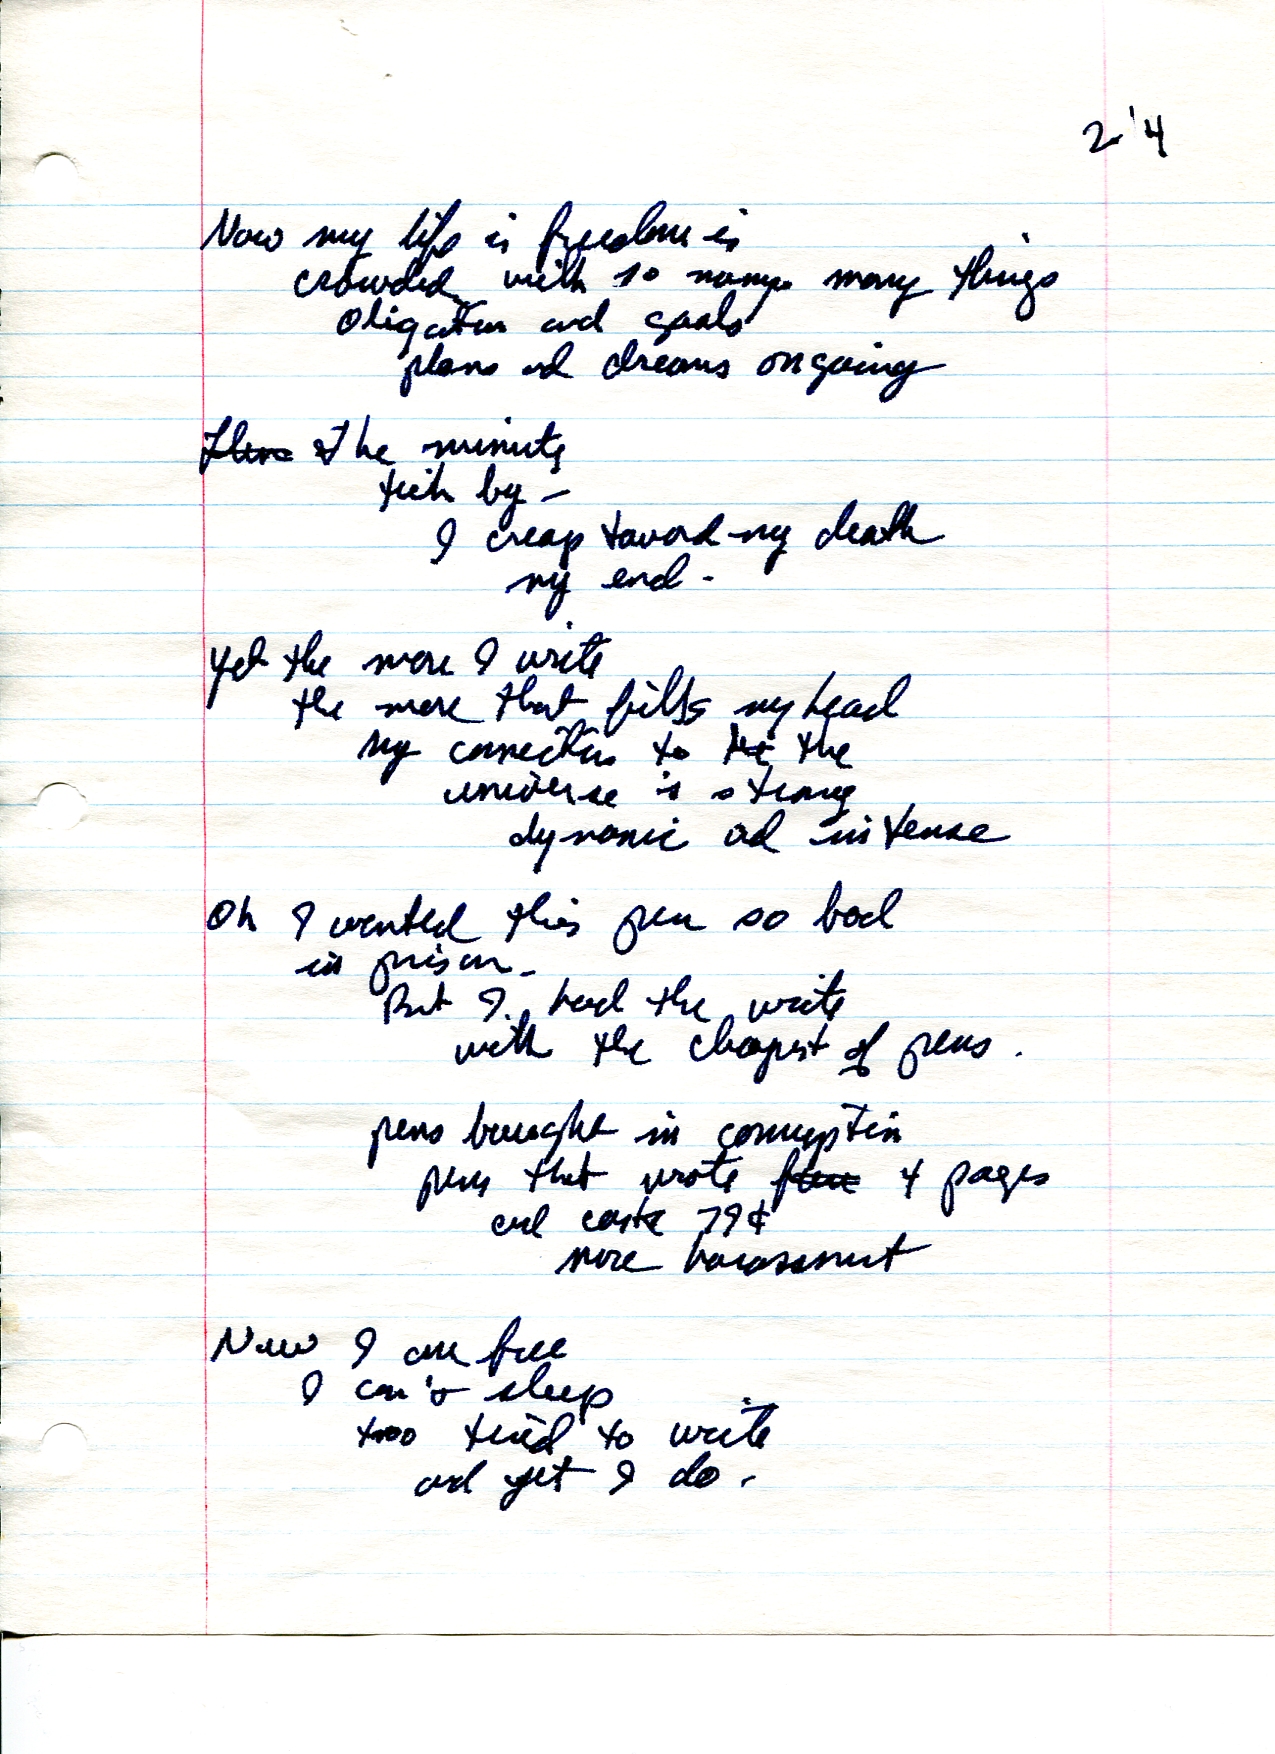 2 '4
Now my life is freedom is
crowded with so many many things
obligation and goals
plans ad dreams ongoing
The minute
tick by –
I creap toward my death
my end -
Yet the more I write
the more that fills my head
my connection to the
universe is strong
dynamic ad intense
Oh I wanted this pen so bad
in prison -
But I had the write
with the cheapest of pens .
pens bought in corruption
pens that wrote 4 pages
and cost 79¢
more harassment
Now I am free
I can't sleep
too tired to write
and yet I do .